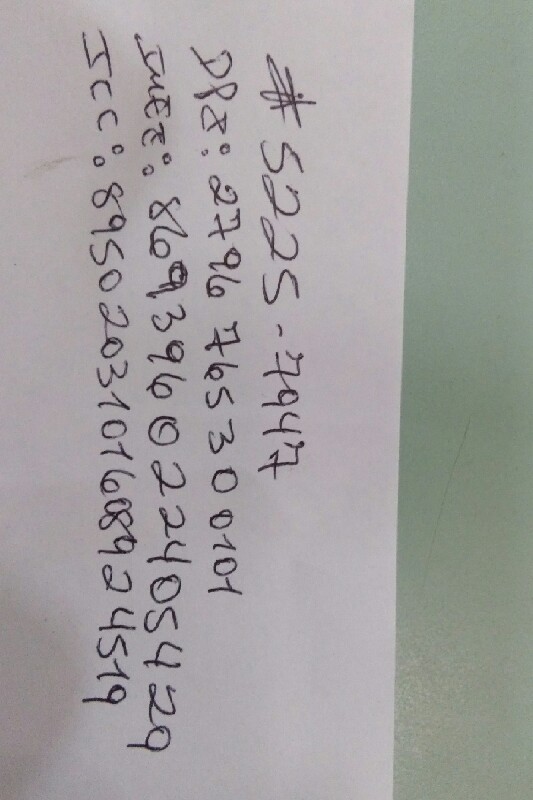 # 5225-7947
DPI: 2796 76530 0101
IMEI: 869396022405429
ICC: 8950203101608924519